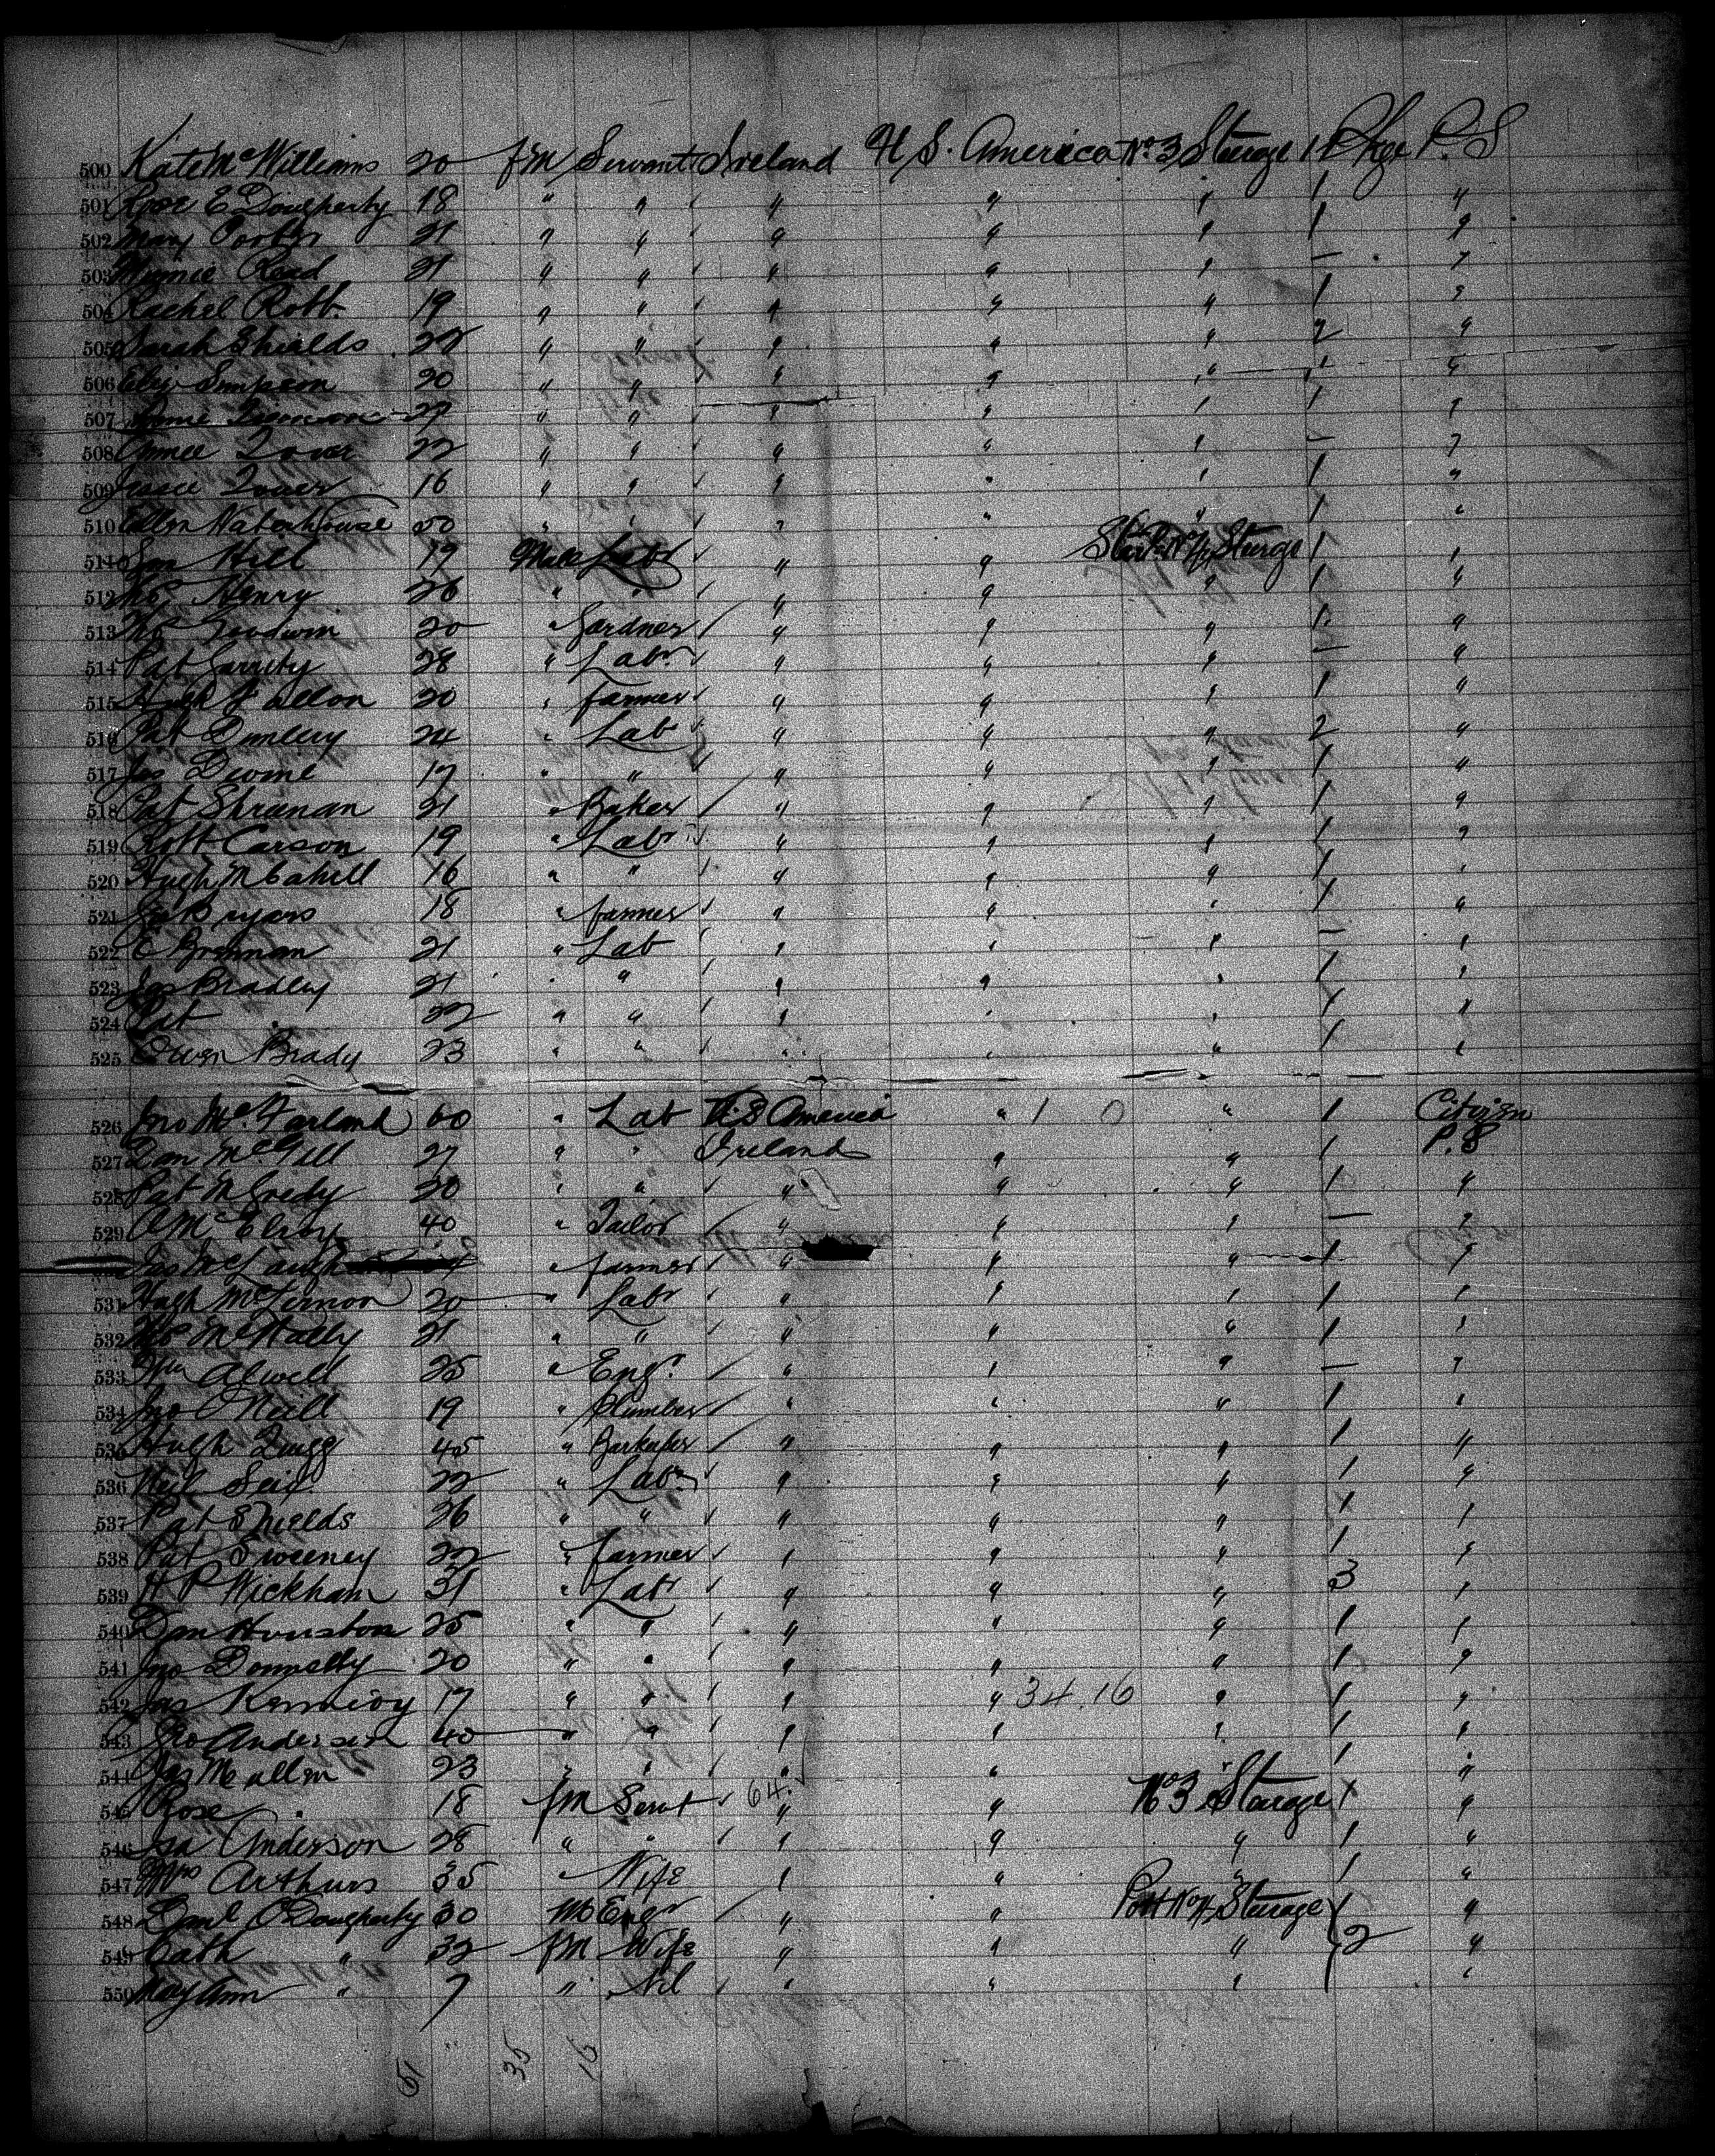 500 Kate McWilliams 20 fm Servant Ireland U S. America No 3 Sterage 1 Pkge P. S
501 Rose E Dougherty 18 " " " " " 1 "
502 Mary 21 " " " " " 1 "
503 Minnie Read 21 " " " " " — "
504 Rachel Robb 19 " " " " " 1 "
505 Sarah Shields 22 " " " " " 2 "
506 Eliz Simpson 20 " " " " " 1 "
507 27 " " " " " 1 "
508 Annie 22 " " " " " — "
509 16 " " " " " 1 "
510 Ellen Waterhouse 50 " " " " " 1 "
511 Hill 19 Male Labr " " Starbd No 4 Sterge 1 "
512 Henry 26 " " " " " 1 "
513 Goodwin 20 " Gardner " " " 1 "
514 Pat Garrity 28 " Labr " " " — "
515 Hugh Fallon 20 " farmer " " " 1 "
516 Pat 24 " Lab " " " 2 "
517 Jas Devine 17 " " " " " 1 "
518 Pat Shreenan 21 " Baker " " " 1 "
519 Robt Carson 19 " Labr " " " 1 "
520 Hugh McCahill 16 " " " " " 1 "
521 Bryars 18 " farmer " " " 1 "
522 21 " Lab " " " — "
523 Jas Bradley 21 " " " " " 1 "
524 Pat " 22 " " " " " 1 "
525 Owen Brady 23 " " " " " 1 "
526 Jno McFarland 60 " Lab U.S America " 1 0 " 1 Citizen
527 Dan McGill 27 " " Ireland " " 1 P. S
528 Pat McGredy 20 " " " " " 1 "
529 A McElroy 40 " Tailor " " " — "
Jas McLaugh " farmer " " " 1 "
531 Hugh McLernon 20 " Labr " " " 1 "
532 McNally 21 " " " " " 1 "
533 Wm Alwell 25 " Engr " " " — "
534 Jno O'Neill 19 " Plumber " " " 1 "
535 Hugh Quigg 45 " Barkeper " " " 1 "
536 Neil 22 " Labr " " " 1 "
537 Pat Shields 26 " " " " " 1 "
538 Pat Sweeney 22 " farmer " " " 1 "
539 H P Wickham 31 " Labr " " " 3 "
540 Dan Houston 25 " " " " " 1 "
541 Jno Donnelly 20 " " " " " 1 "
542 Jas Kennedy 17 " " " " 34.16 " 1 "
543 Geo Anderson 40 " " " " " 1 "
544 Jas McCallen 23 " " " " " 1 "
545 Rose " 18 fm Servt 64. " " No 3 Sterage 1 "
546 Isa Anderson 28 " " " " " 1 "
547 Mrs Arthurs 35 " Wife " " " 1 "
548 Danl O'Dougherty 30 M Engr " " Port No 4 Sterage 1 "
549 Cath " 32 fm Wife " " " 2 "
550 Mary Ann " 7 " Nil " " " "
51 35 16